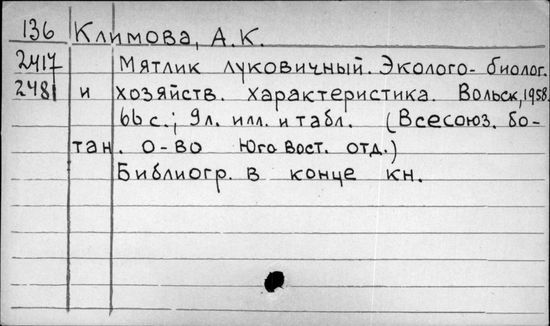 136 Климова, А.К.
2417 Мятлик луковичный. Эколого-биолог.
2481 и хозяйств. характеристика. Вольск, 1958.
66 с.; 9л. илл. и табл. (Всесоюз. бо-
тан. о-во Юго Вост. отд.)
Библиогр. в конце кн.